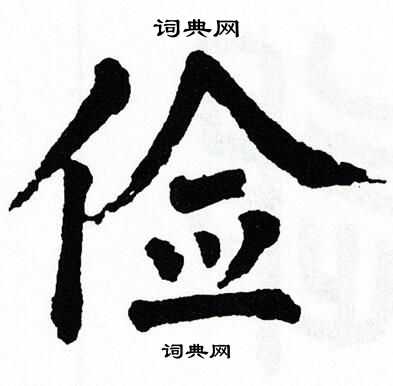 词典网
俭
词典网